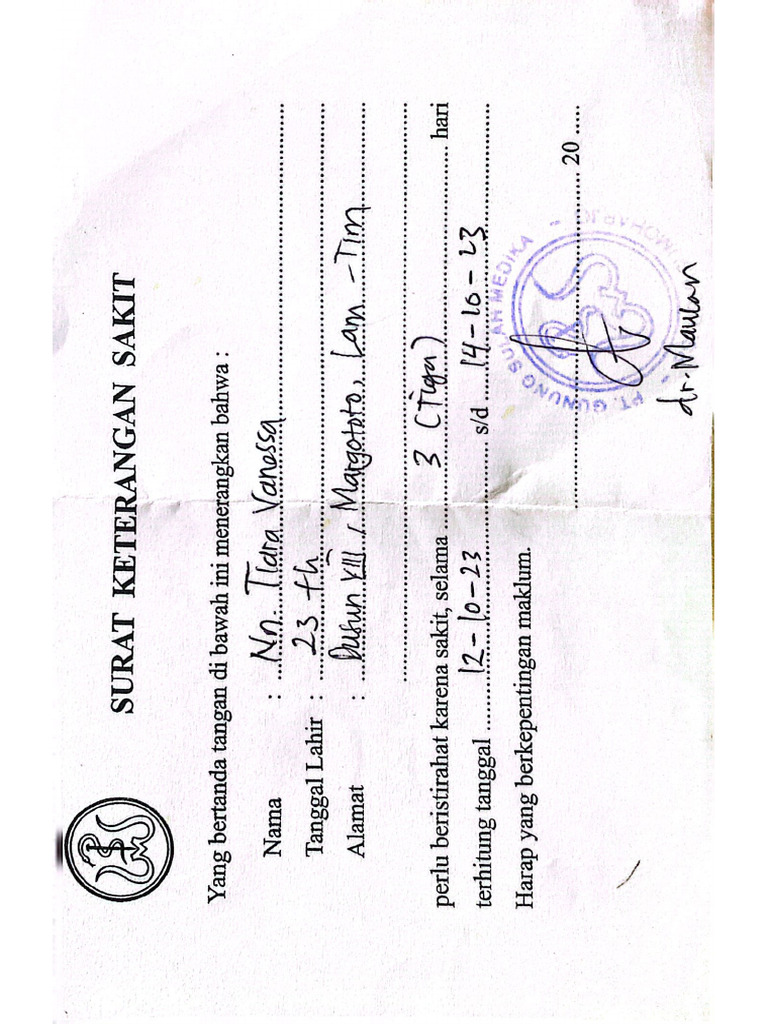 SURAT KETERANGAN SAKIT
Yang bertanda tangan di bawah ini menerangkan bahwa :
Nama : Nn. Tiara Vanessa
Tanggal Lahir : 23 th
Alamat : Dusun XIII, Margototo, Lam - Tim
perlu beristirahat karena sakit, selama 3 (Tiga) hari
terhitung tanggal 12-10-23 s/d 14-10-23
Harap yang berkepentingan maklum.
20
PT. GUNUNG SULAH MEDIKA
dr. Maulan